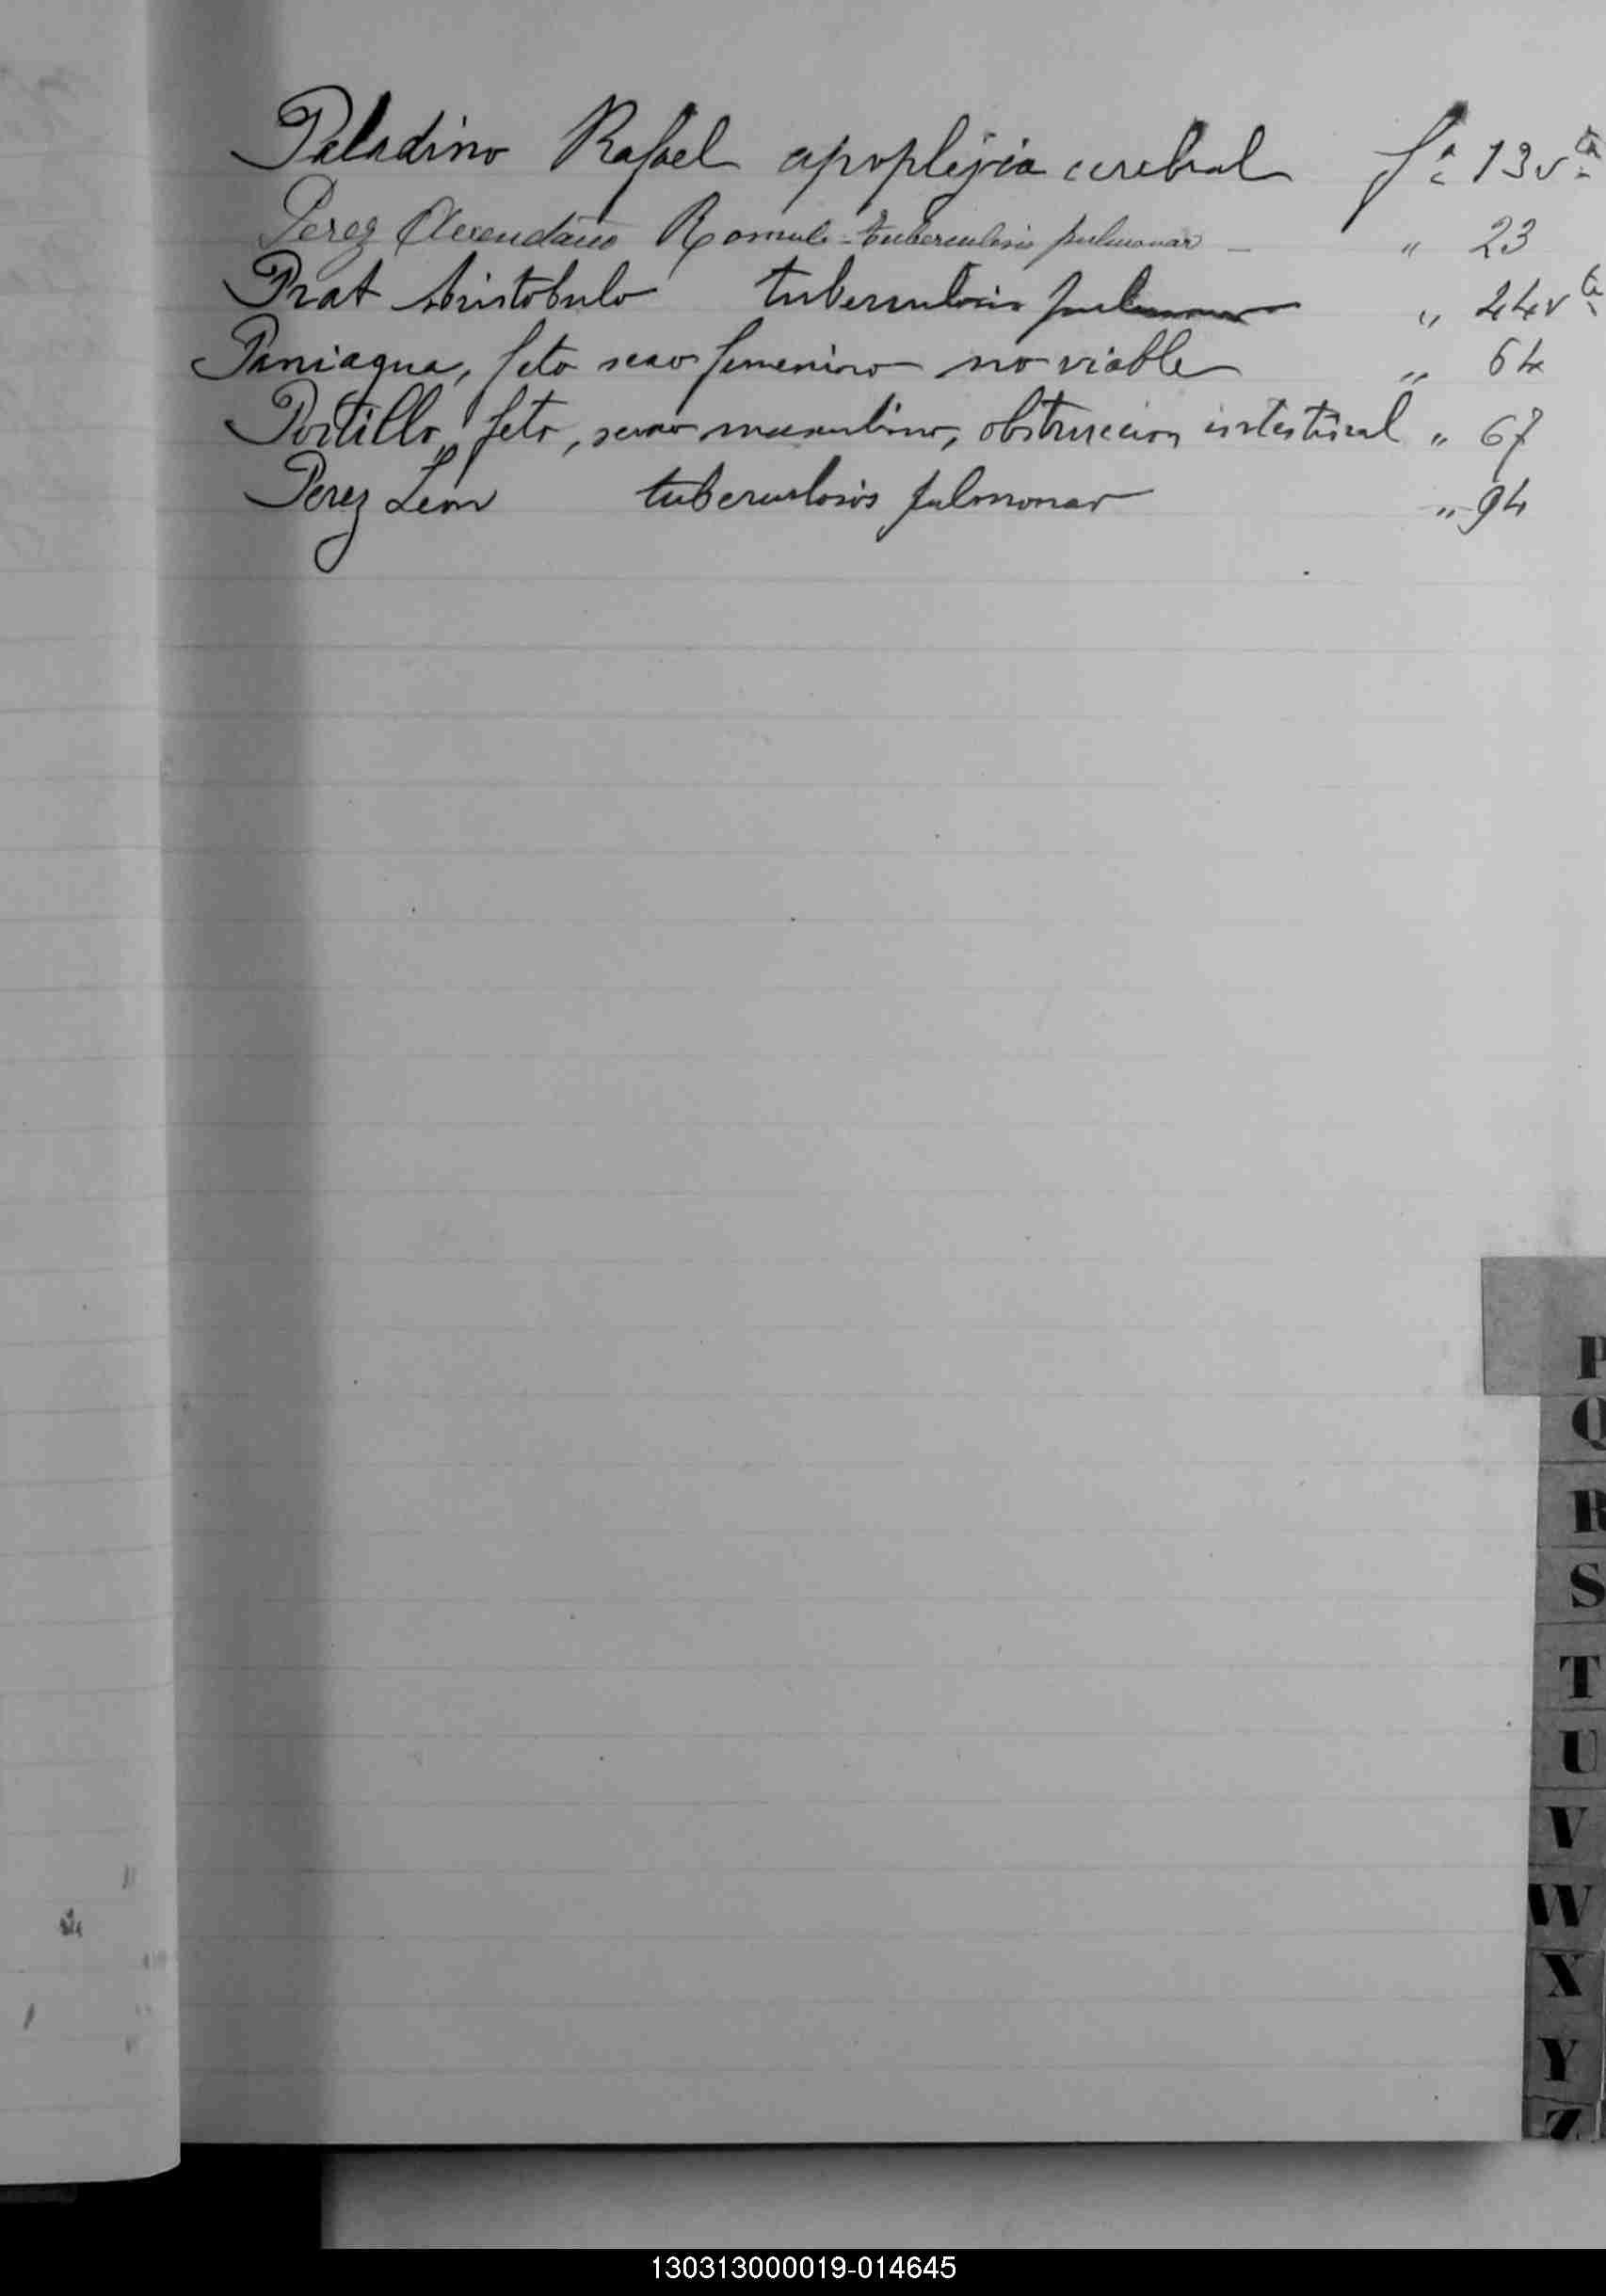 Paladino Rafael apoplejia cerebral fª 13vta
Perez Avendaño Romulo - tuberculosis pulmonar - " 23
Prat Aristobulo tuberculosis pulmonar " 44vta
Paniagua, feto sexo femenino no viable " 64
Portillo, feto, sexo masculino, obstruccion intestinal " 67
Perez Leon tuberculosis pulmonar " 94
P
Q
R
S
T
U
V
W
X
Y
Z
130313000019-014645